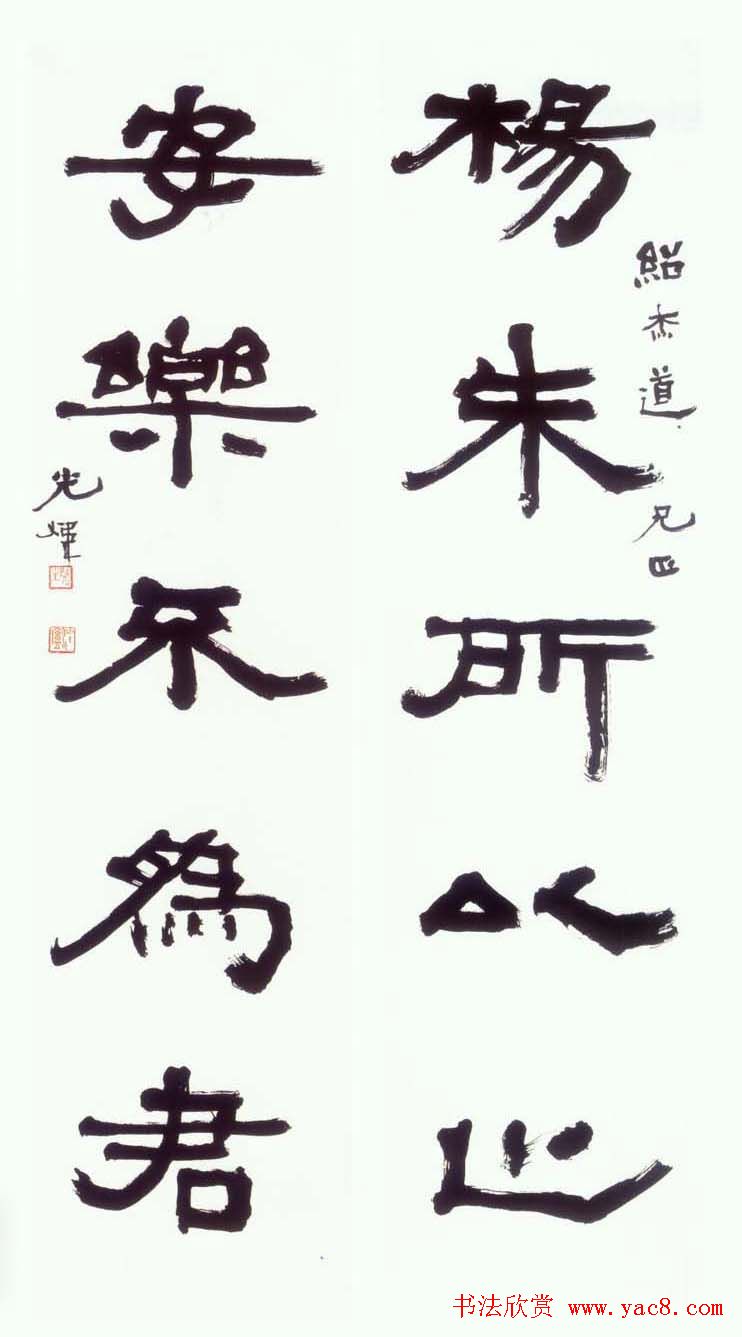 紹杰道兄正
楊朱所以
安樂不為君
光煇
书法欣赏 www.yac8.com